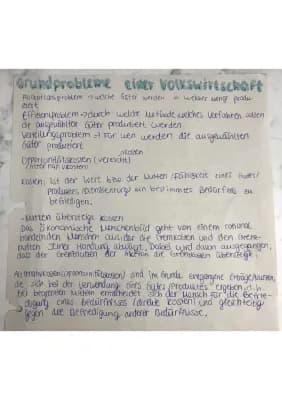 Grundprobleme einer Volkswirtschaft
Allokationsproblem → welche Güter werden in welcher Menge produ
ziert
Effizienzproblem → durch welche welches Verfahren sollen
die ausgewählten Güter produziert werden
Verteilungsproblem → für wen werden die ausgewählten
Güter produziert
Kosten
Opportunitätskosten (verzicht)
Kosten: ist der Wert bzw. der Nutzen (Fähigkeit eines Gutes/
Produktes) ein bestimmtes Bedürfnis zu
befriedigen.
- Nutten übersteigt Kosten
Das Ökonomische Menschenbild geht von einem rational
handelnden Menschen aus, der die Grenzkosten und den Grenz-
nutzen seiner Handlung abwägt. Dabei wird davon ausgegangen,
dass der Grenznutzen der die Grenzkosten übersteigt.
Alternativkosten (Opportunitätskosten) sind im Grunde entgangene Erträge/Nutzen,
die sich bei der Verwendung eines Gutes/Produktes ergeben, d.h.
bei begrenzten Mitteln entscheidet sich der Mensch für die Befrie-
digung eines Bedürfnisses (direkte Kosten) und gleichzeitig
gegen die Befriedigung anderer Bedürfnisse.